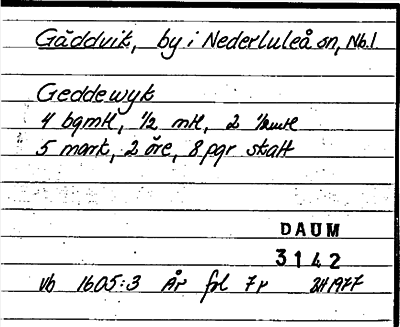 Gäddvik, by i Nederluleå sn, Nb.l.
Geddewyk
4 bgmtl, 1/2 mtl, 2 1/2mtl
5 mark, 2 öre, 8 pgr skatt
DAUM
3142
vb 1605:3 År fol 7r 1977